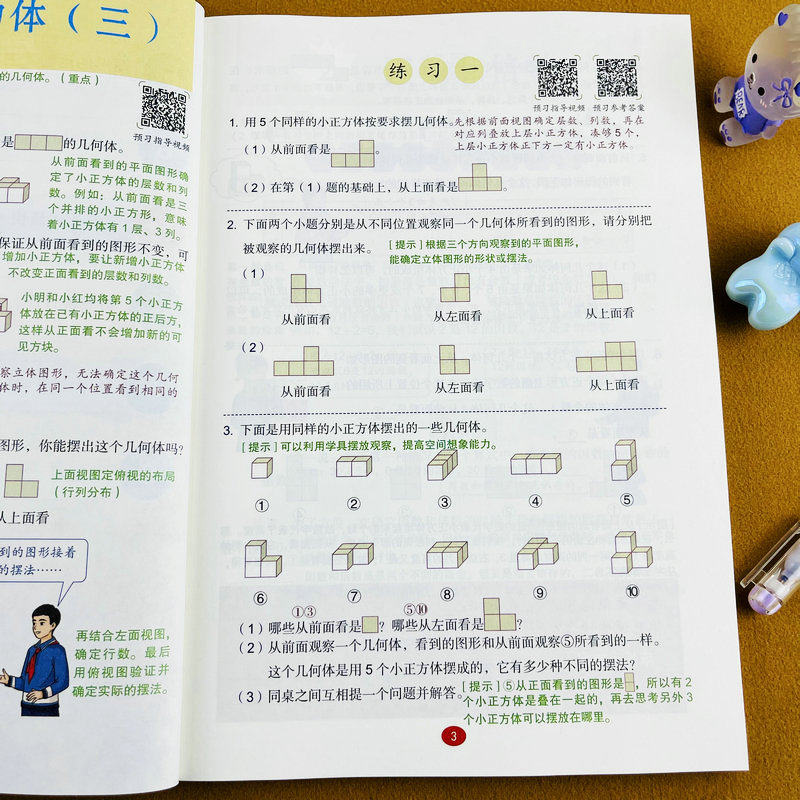 体（三）
的几何体。（重点）
预习指导视频
是 的几何体。
从前面看到的平面图形确
定了小正方体的层数和列
数。例如：从前面看是三
个并排的小正方形，意味
着小正方体有1层、3列。
保证从前面看到的图形不变，可
增加小正方体，要让新增小正方体
不改变正面看到的层数和列数。
小明和小红均将第5个小正方
体放在已有小正方体的正后方，
这样从正面看不会增加新的可
见方块。
察立体图形，无法确定这个几何
体时，在同一个位置看到相同的
图形，你能摆出这个几何体吗？
上面视图定俯视的布局
（行列分布）
从上面看
到的图形接着
的摆法……
再结合左面视图，
确定行数。最后
用俯视图验证并
确定实际的摆法。
练习一
预习指导视频 预习参考答案
1. 用5个同样的小正方体按要求摆几何体。
先根据前面视图确定层数、列数，再在
对应列叠放上层小正方体，凑够5个，
上层小正方体正下方一定有小正方体。
（1）从前面看是 。
（2）在第（1）题的基础上，从上面看是 。
2. 下面两个小题分别是从不同位置观察同一个几何体所看到的图形，请分别把
被观察的几何体摆出来。
[提示]根据三个方向观察到的平面图形，
能确定立体图形的形状或摆法。
（1）
从前面看 从左面看 从上面看
（2）
从前面看 从左面看 从上面看
3. 下面是用同样的小正方体摆出的一些几何体。
[提示]可以利用学具摆放观察，提高空间想象能力。
① ② ③ ④ ⑤
⑥ ⑦ ⑧ ⑨ ⑩
①③ ⑤⑩
（1）哪些从前面看是 ？哪些从左面看是 ？
（2）从前面观察一个几何体，看到的图形和从前面观察⑤所看到的一样。
这个几何体是用5个小正方体摆成的，它有多少种不同的摆法？
（3）同桌之间互相提一个问题并解答。
[提示]⑤从正面看到的图形是 ，所以有2
个小正方体是叠在一起的，再去思考另外3
个小正方体可以摆放在哪里。
3